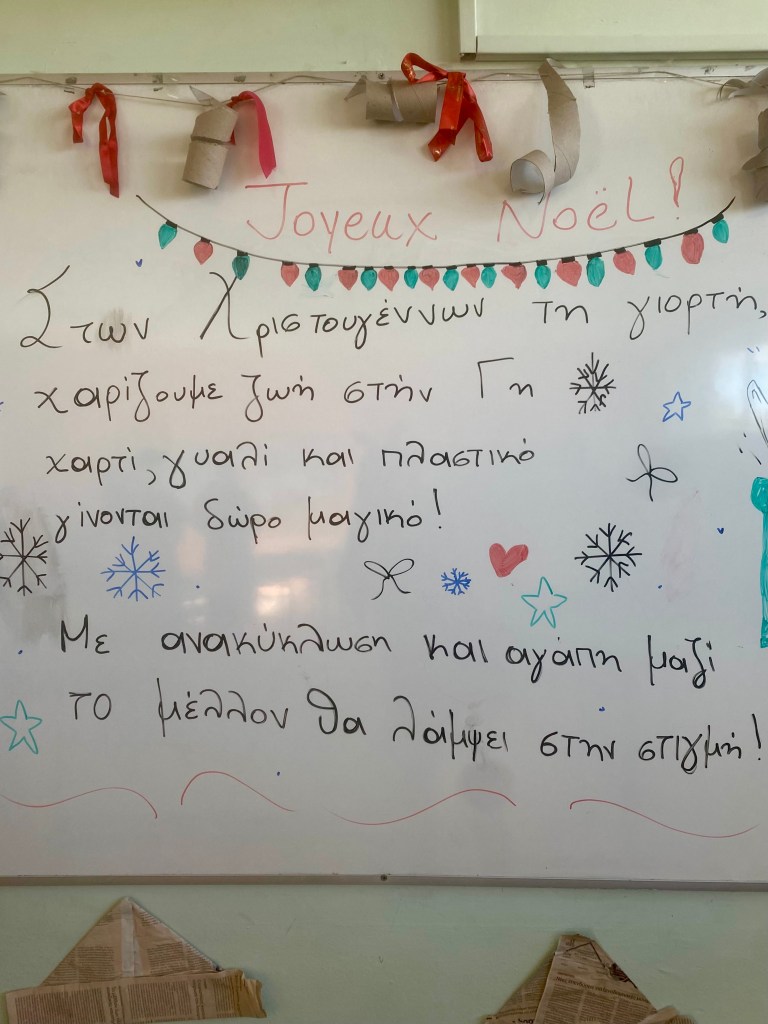 Joyeux Noël!
Στων Χριστουγέννων τη γιορτή,
χαρίζουμε ζωή στήν Γη
χαρτί, γυαλί και πλαστικό
γίνονται δώρο μαγικό!
Με ανακύκλωση και αγάπη μαζί
το μέλλον θα λάμψει στην στιγμή!